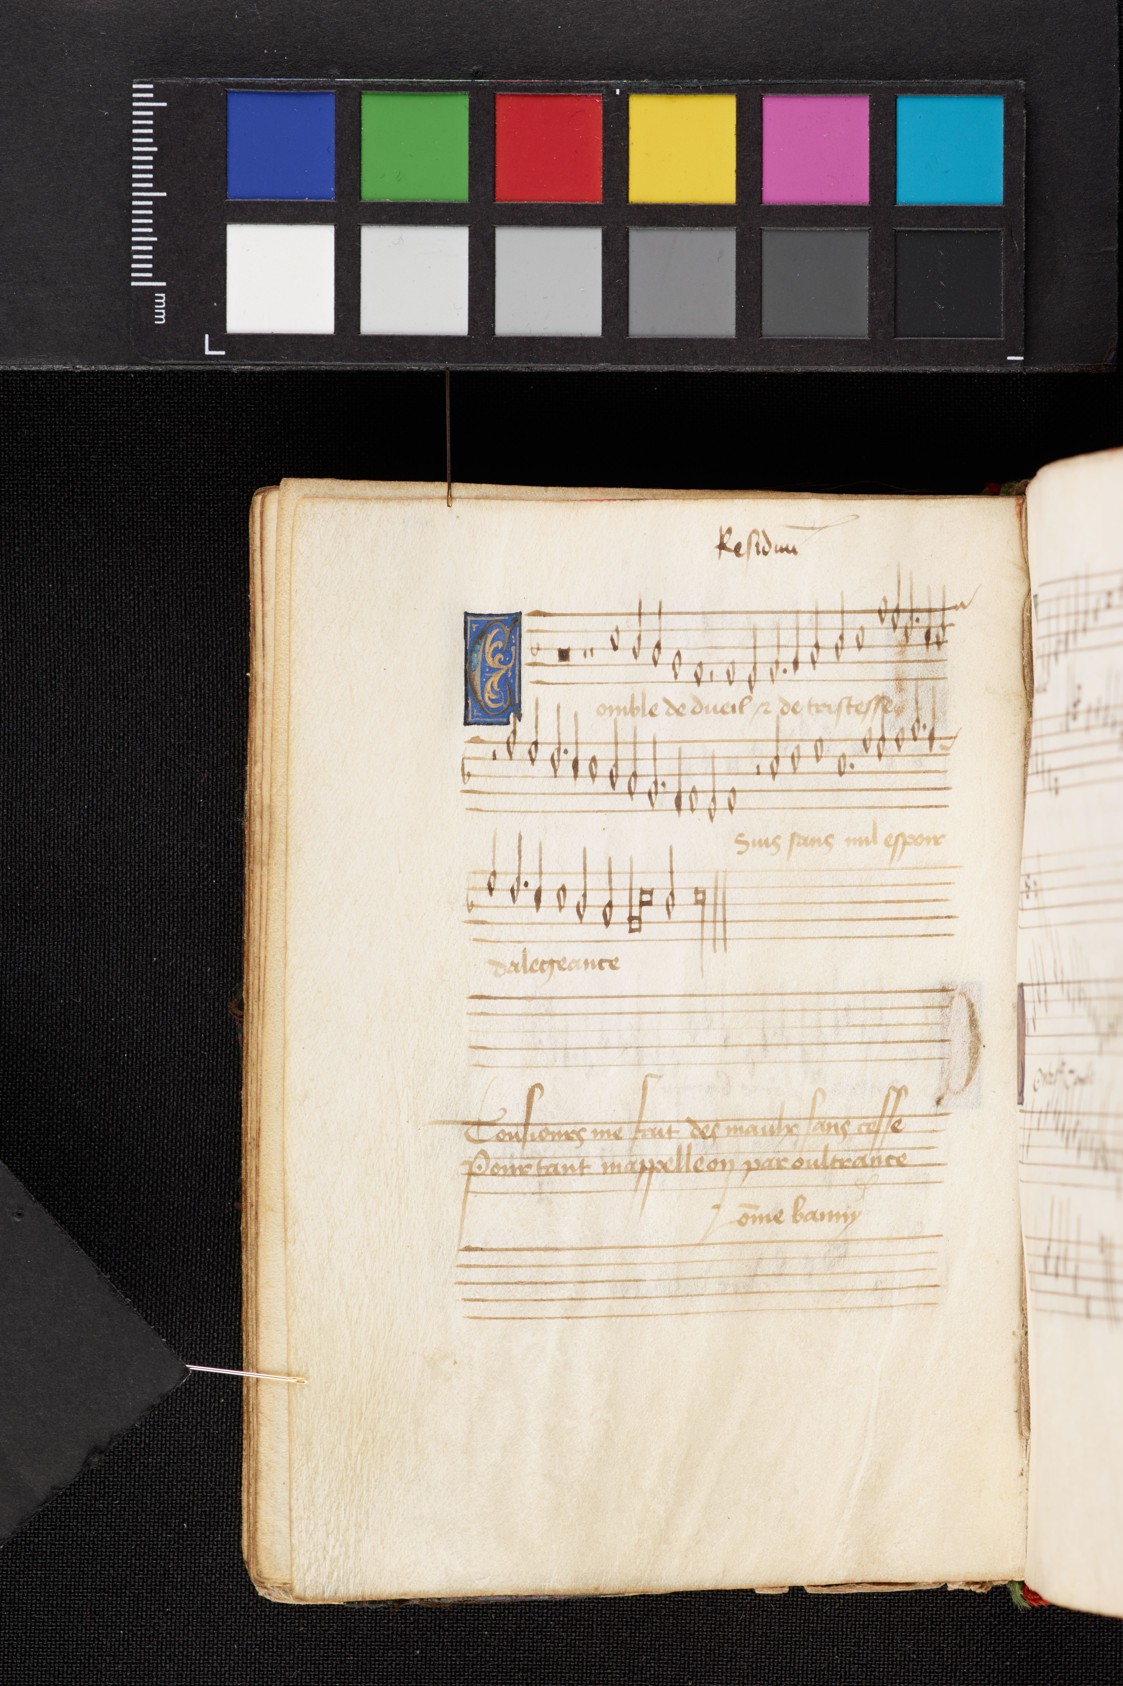 mm
Residuu
Comble de dueil et de tristesse
Suis sans nul espoir
dalegeance
Tousiours me fait des maulx sans cesse
Pourtant mappelle on par oultrance
ōme banny